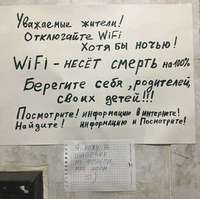 Уважаемые жители!
Отключайте WiFi
Хотя бы ночью!
WiFi - несёт смерть на 100%
Берегите себя, родителей,
своих детей!!!
Посмотрите! информацию в интернете!
Найдите! информацию и Посмотрите!
Я